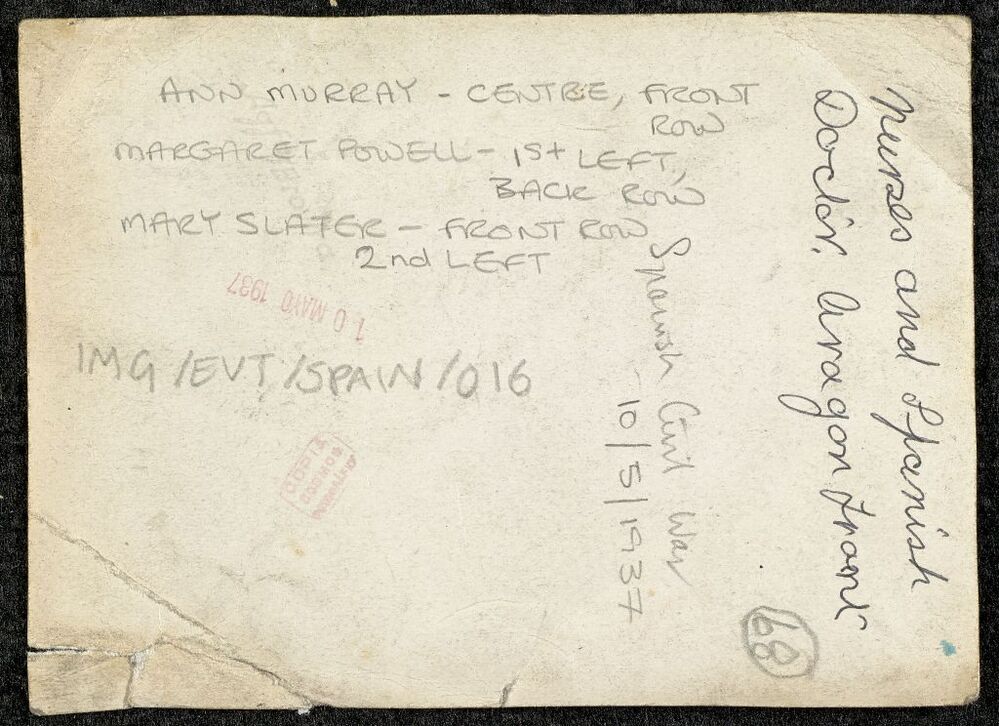 ANN MURRAY - CENTRE, FRONT
ROW
MARGARET POWELL - 1st LEFT,
BACK ROW
MARY SLATER - FRONT ROW
2nd LEFT
10 MAYO 1937
IMG/EVT/SPAIN/016
COPIA
Spanish Civil War
10/5/1937
Nurses and Spanish
Doctor, Aragon Front
68